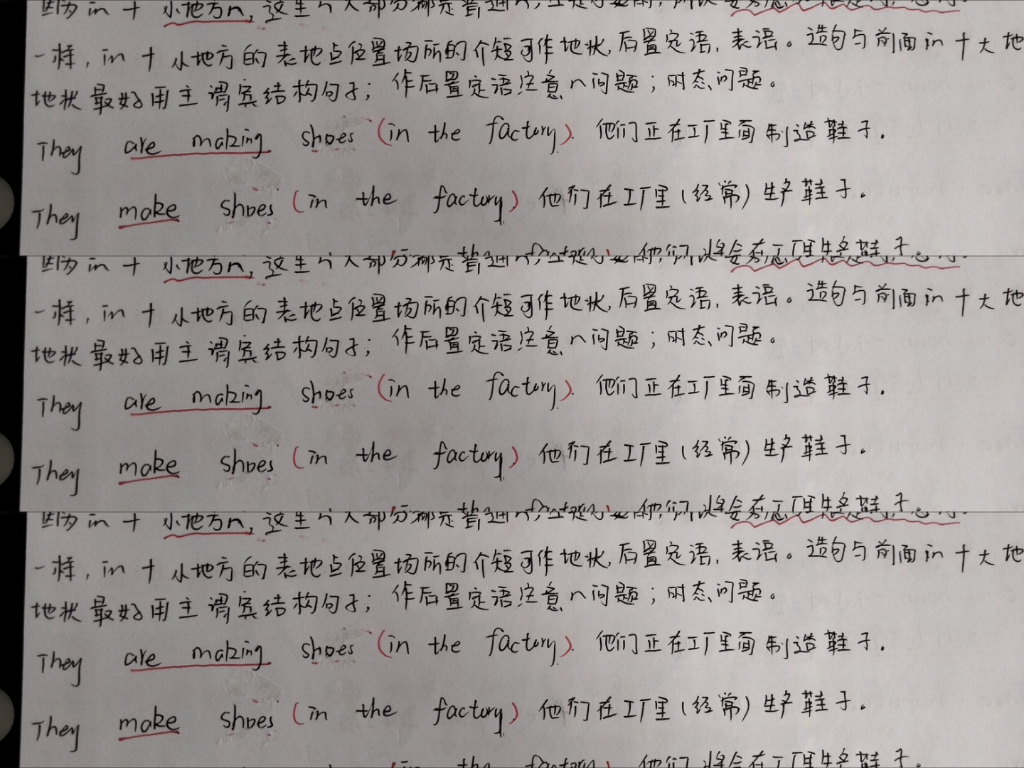 因为in十小地方n,这里
一样,in十小地方的表地点位置场所的介短可作地状,后置定语,表语。造句与前面in十大地
地状最好用主谓宾结构句子;作后置定语注意n问题;时态问题。
They are making shoes (in the factory). 他们正在工厂里面制造鞋子.
They make shoes (in the factory) 他们在工厂里(经常)生产鞋子。
因为in十小地方n,这里
一样,in十小地方的表地点位置场所的介短可作地状,后置定语,表语。造句与前面in十大地
地状最好用主谓宾结构句子;作后置定语注意n问题;时态问题。
They are making shoes (in the factory). 他们正在工厂里面制造鞋子.
They make shoes (in the factory) 他们在工厂里(经常)生产鞋子。
因为in十小地方n,这里
一样,in十小地方的表地点位置场所的介短可作地状,后置定语,表语。造句与前面in十大地
地状最好用主谓宾结构句子;作后置定语注意n问题;时态问题。
They are making shoes (in the factory). 他们正在工厂里面制造鞋子.
They make shoes (in the factory) 他们在工厂里(经常)生产鞋子。